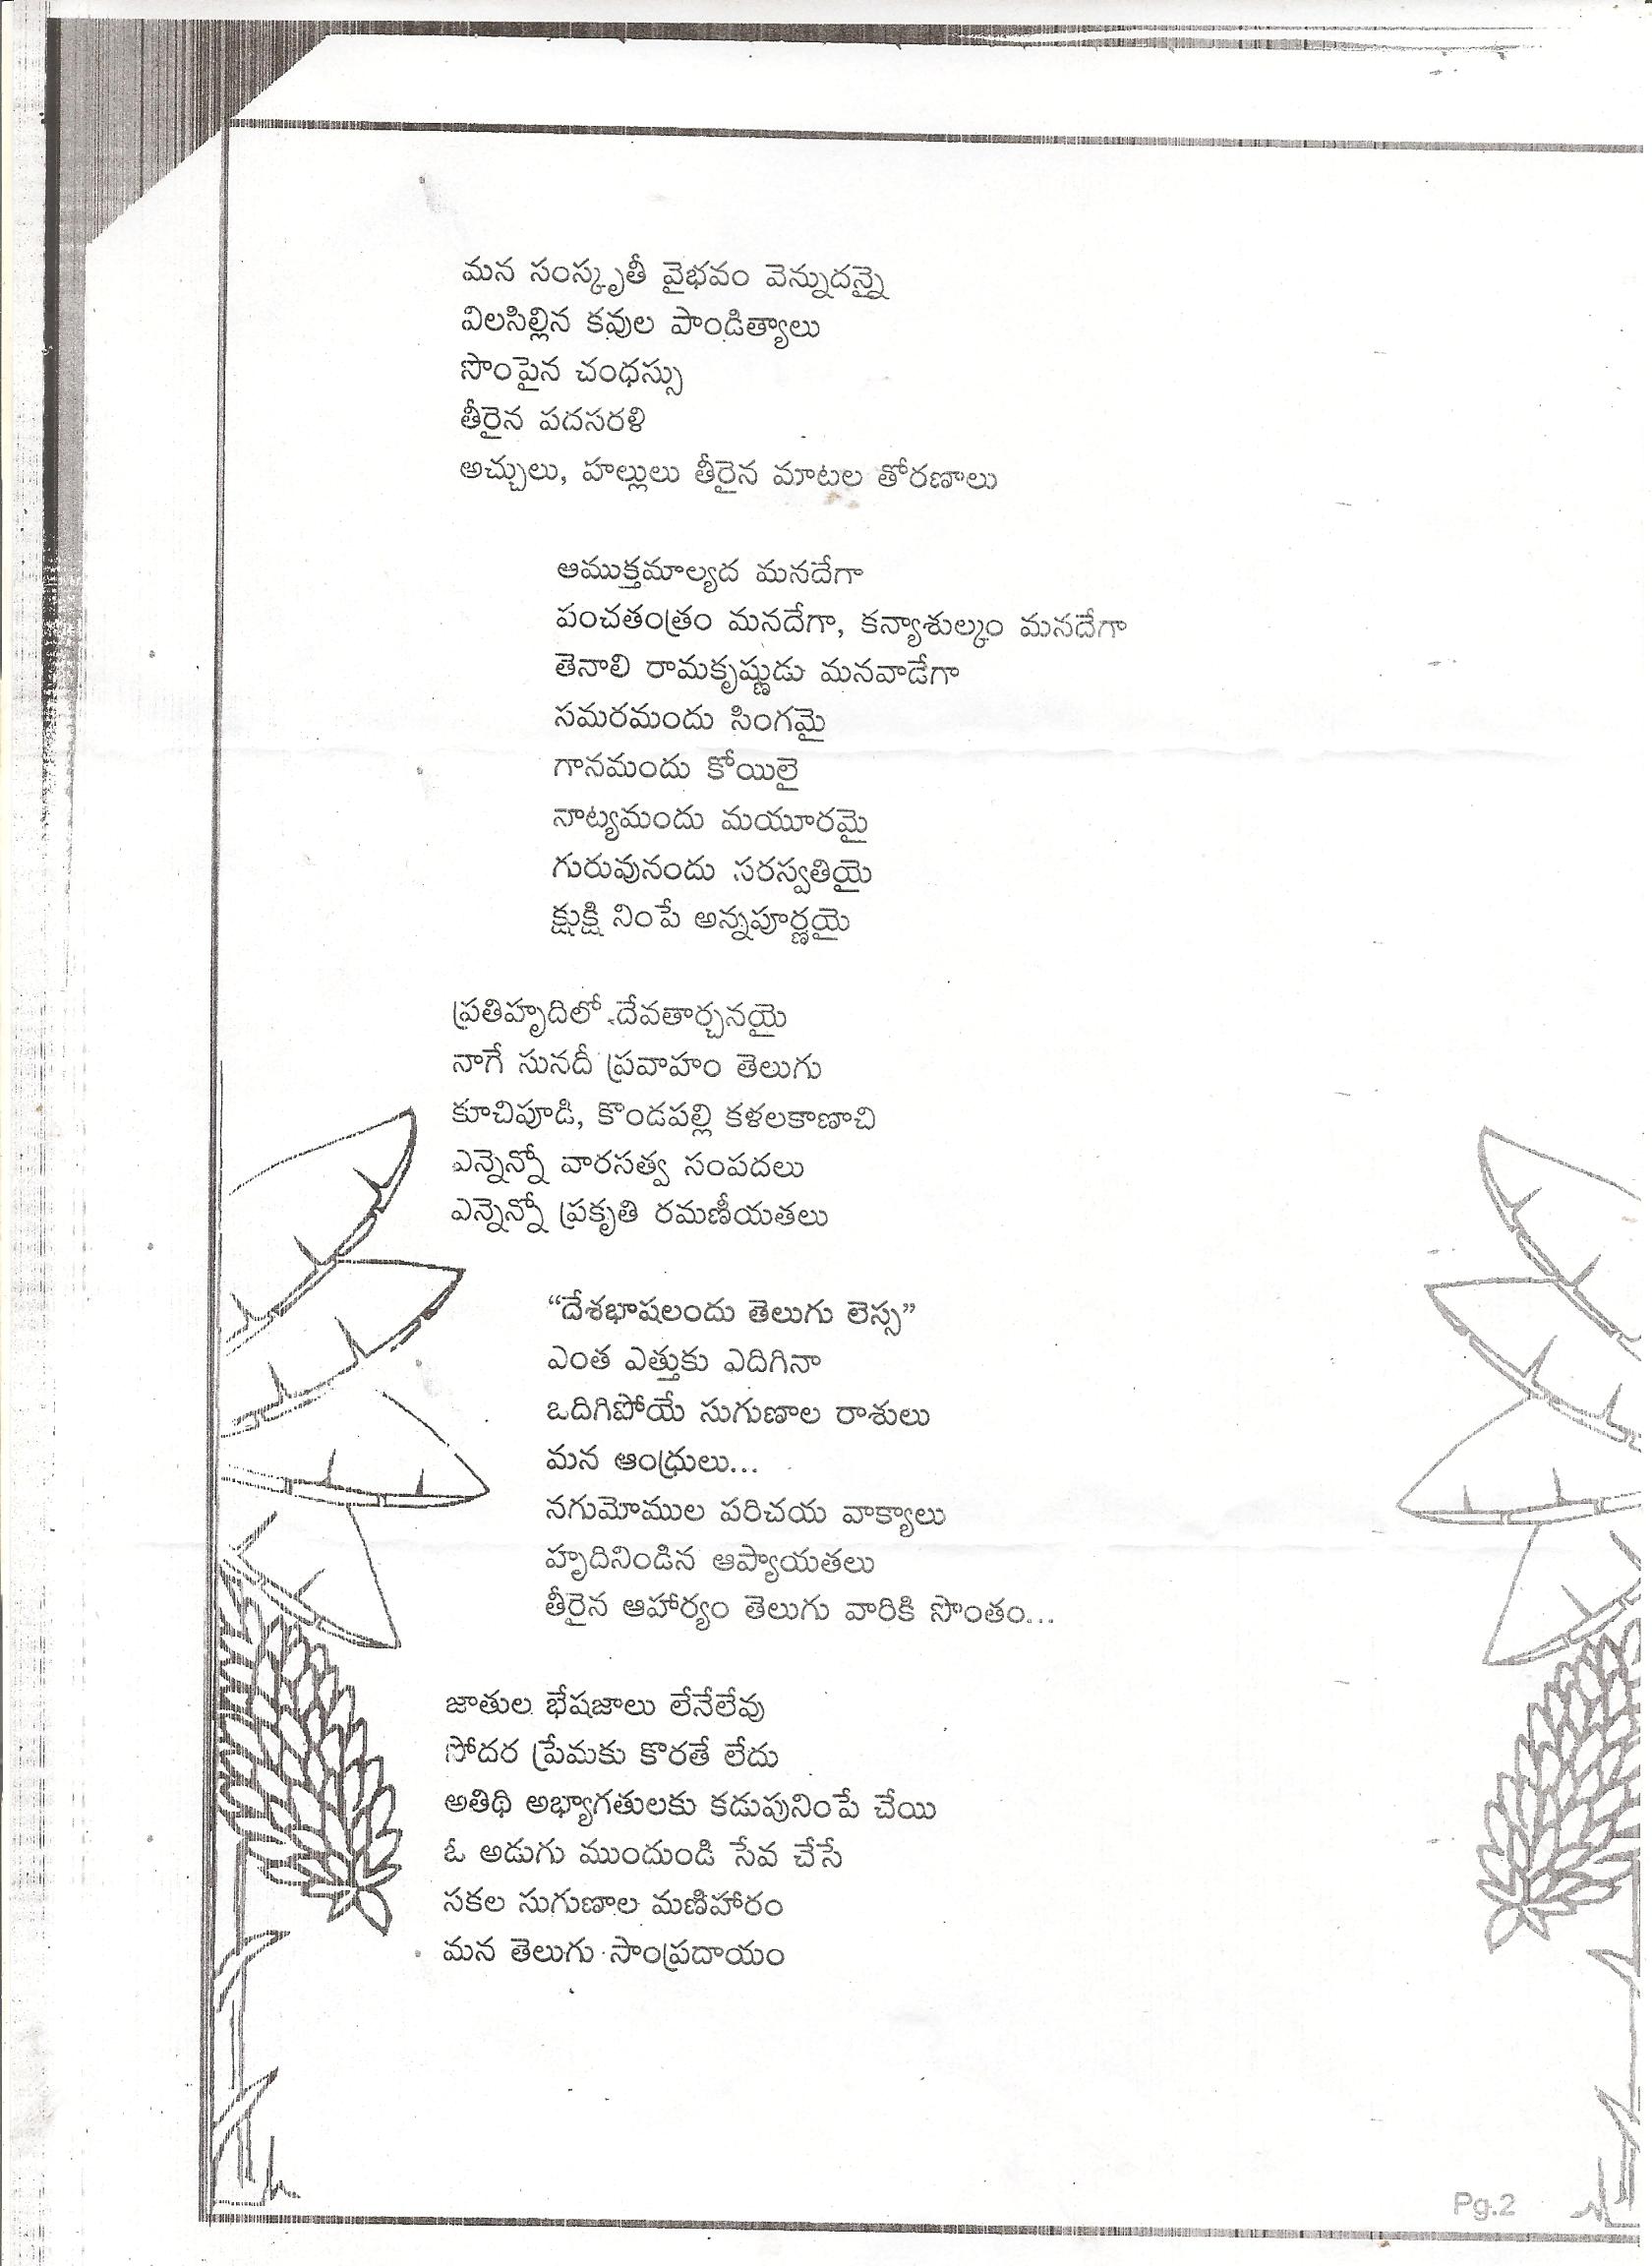 మన సంస్కృతీ వైభవం వెన్నుదన్నై
విలసిల్లిన కవుల పాండిత్యాలు
సొంపైన చంధస్సు
తీరైన పదసరళి
అచ్చులు, హల్లులు తీరైన మాటల తోరణాలు
ఆముక్తమాల్యద మనదేగా
పంచతంత్రం మనదేగా, కన్యాశుల్కం మనదేగా
తెనాలి రామకృష్ణుడు మనవాడేగా
సమరమందు సింగమై
గానమందు కోయిలై
నాట్యమందు మయూరమై
గురువునందు సరస్వతియై
క్షుక్షి నింపే అన్నపూర్ణయై
ప్రతిహృదిలో దేవతార్చనయై
నాగే సునదీ ప్రవాహం తెలుగు
కూచిపూడి, కొండపల్లి కళలకాణాచి
ఎన్నెన్నో వారసత్వ సంపదలు
ఎన్నెన్నో ప్రకృతి రమణీయతలు
“దేశభాషలందు తెలుగు లెస్స”
ఎంత ఎత్తుకు ఎదిగినా
ఒదిగిపోయే సుగుణాల రాశులు
మన ఆంధ్రులు...
నగుమోముల పరిచయ వాక్యాలు
హృదినిండిన ఆప్యాయతలు
తీరైన ఆహార్యం తెలుగు వారికి సొంతం...
జాతుల భేషజాలు లేనేలేవు
సోదర ప్రేమకు కొరతే లేదు
అతిథి అభ్యాగతులకు కడుపునింపే చేయి
ఓ అడుగు ముందుండి సేవ చేసే
సకల సుగుణాల మణిహారం
మన తెలుగు సాంప్రదాయం
Pg.2